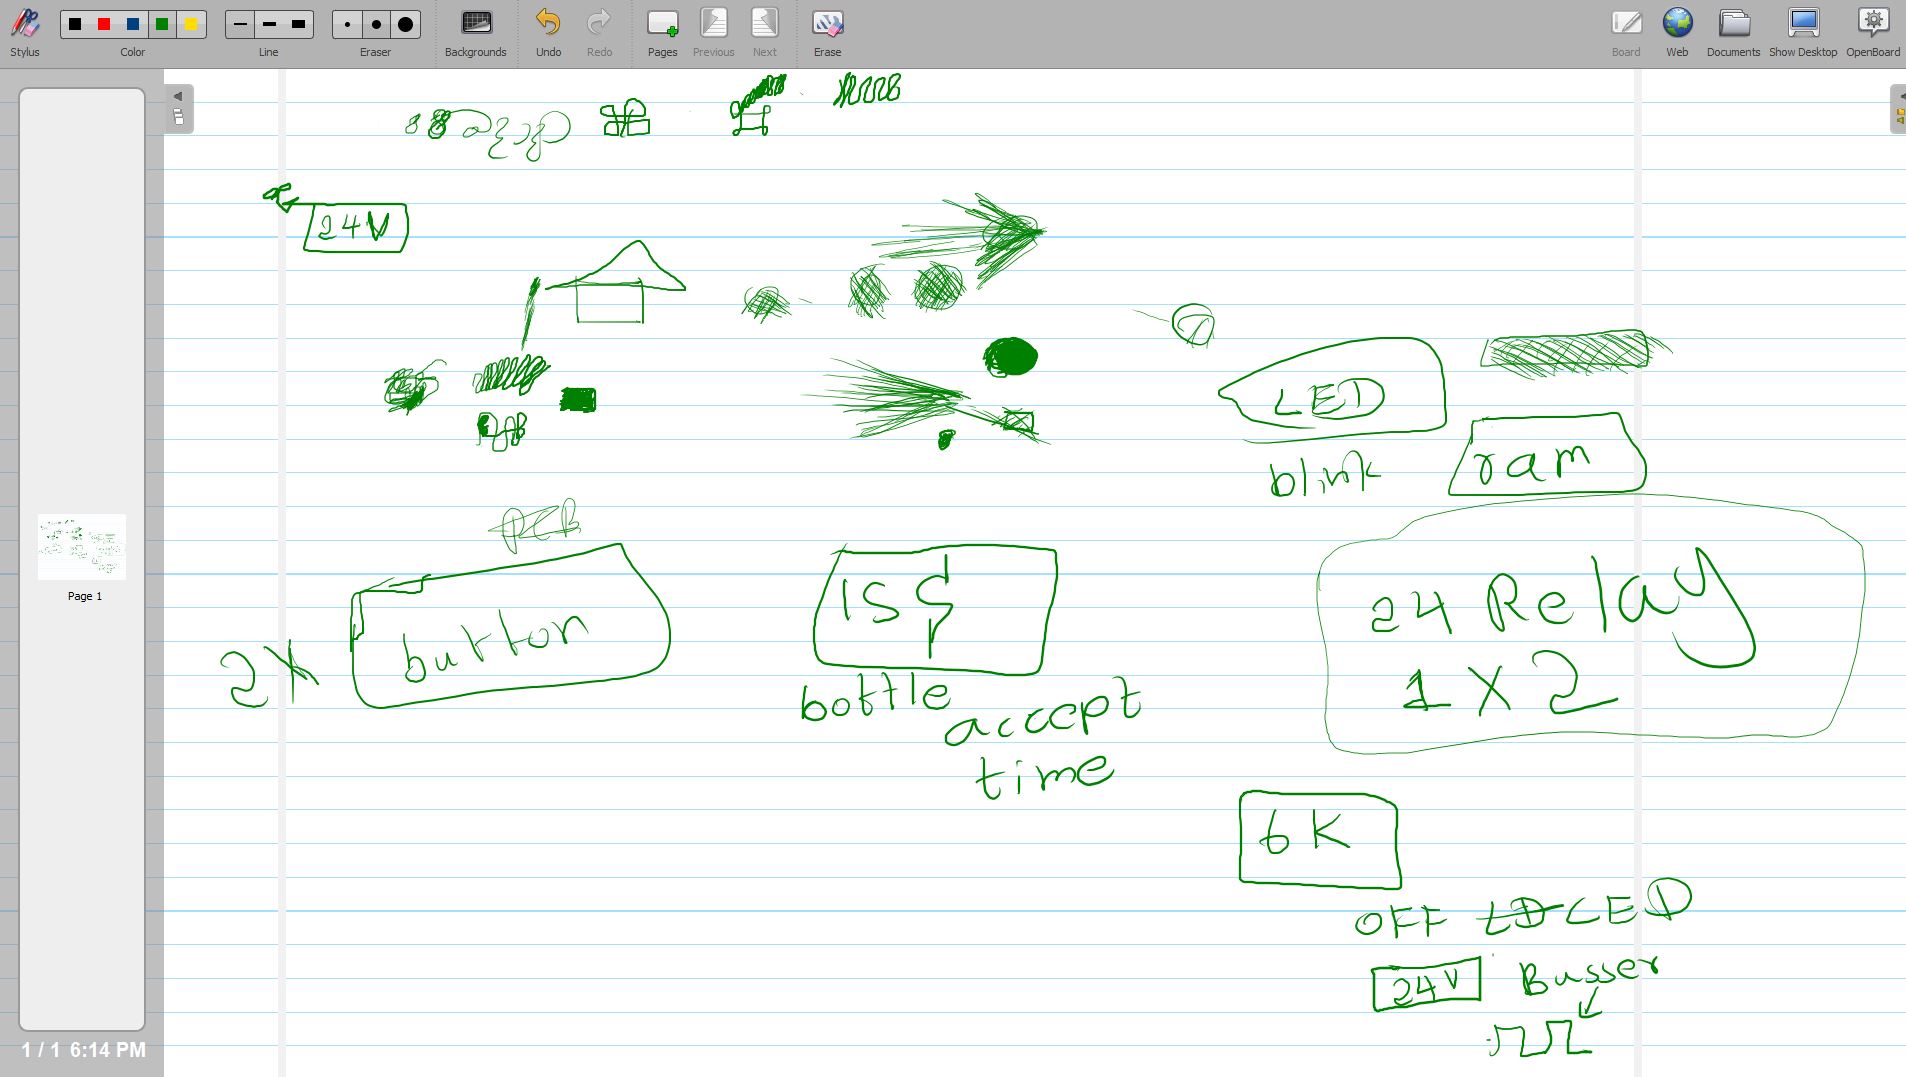 Stylus
Color
Line
Eraser
Backgrounds
Undo
Redo
Pages
Previous
Next
Erase
Board
Web
Documents
Show Desktop
OpenBoard
24V
LED
blink
ram
PCB
2x
button
bottle
accept
time
24 Relay
1 x 2
6K
OFF LED
24V Busser
Page 1
1 / 1 6:14 PM